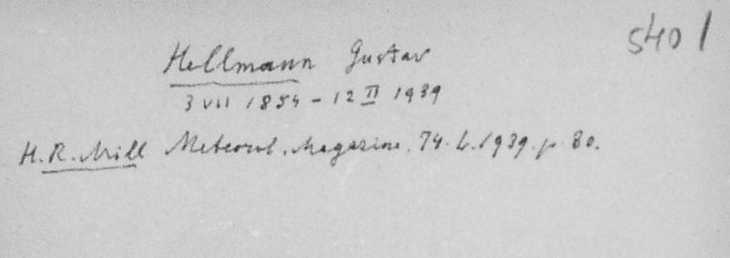 5401
Hellmann Gustav
3 VII 1854 – 12 II 1939
H. R. Mill Meteorol. Magazine. 74. L. 1939. p. 80.